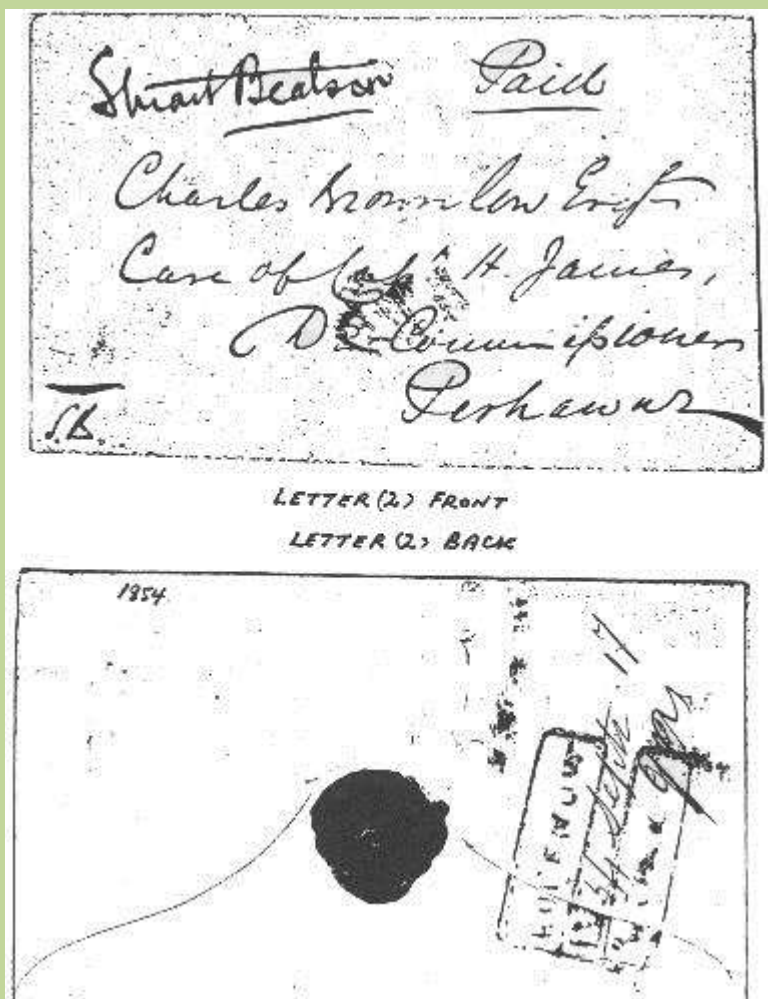 Stuart Beatson Paid
Charles Brownlow Esqr
Care of Capt H. James,
Dy Commissioner
Peshawur
S.B.
LETTER (2) FRONT
LETTER (2) BACK
1854
17